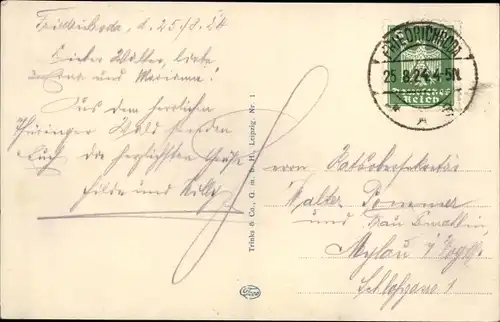 Friedrichroda, d. 25/8.24
Lieber Walter, liebe
und Marianne!
Aus dem herrlichen
Thüringer Wald senden
Euch die herzlichsten Grüße
Hilde und Willi
Trinks & Co., G. m. b. H., Leipzig. Nr. 1
FRIEDRICHRODA
25.8.24.4-5N.
Deutsches
Reich
Herrn
Walter
und Frau
Mylau i/Vogtl.
Schloßgasse 1